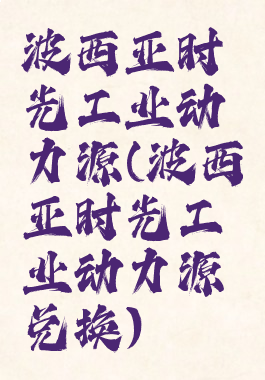 波西亚时
光工业动
力源(波西
亚时光工
业动力源
兑换)